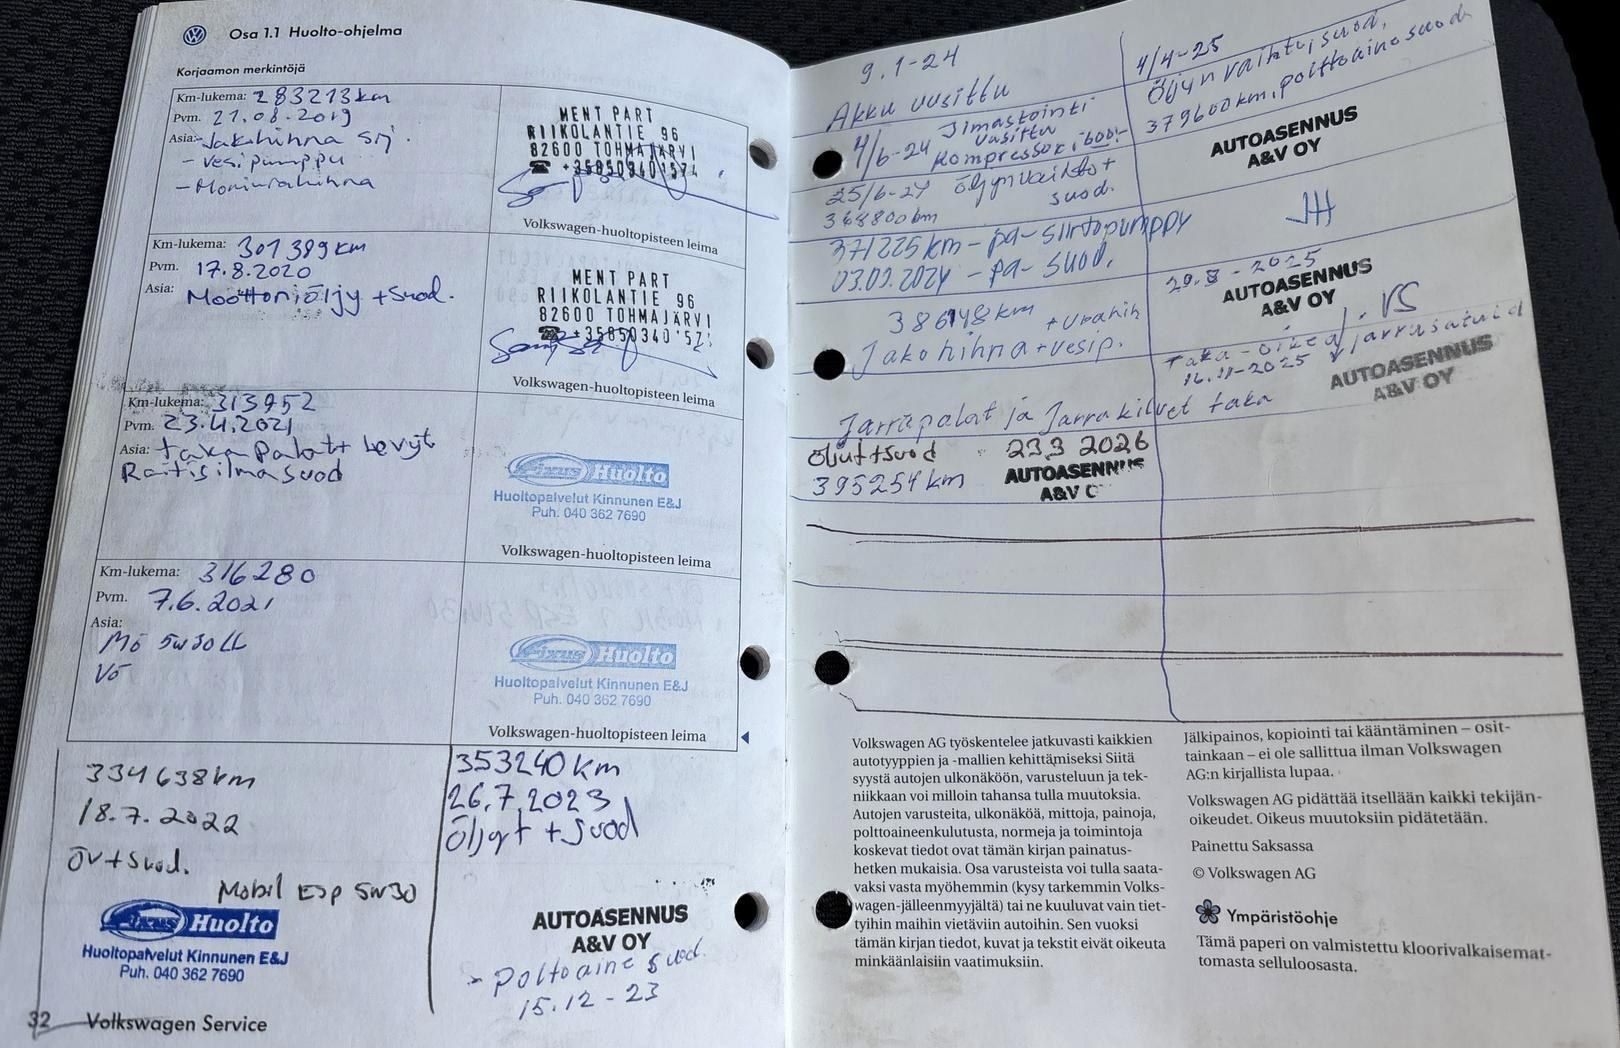 Osa 1.1 Huolto-ohjelma
Korjaamon merkintöjä
Km-lukema: 283213km
Pvm. 21.08.2019
Asia: - Jakohihna srj.
- vesipumppu
- Moniurahihna
MENT PART
RIIKOLANTIE 96
82600 TOHMAJÄRVI
Volkswagen-huoltopisteen leima
Km-lukema: 301389km
Pvm. 17.8.2020
Asia: Moottoriöljy + suod.
MENT PART
RIIKOLANTIE 96
82600 TOHMAJÄRVI
Volkswagen-huoltopisteen leima
Km-lukema: 313952
Pvm. 23.4.2021
Asia: takapalat + levyt
Raitisilmasuod
Fixus Huolto
Huoltopalvelut Kinnunen E&J
Puh. 040 362 7690
Volkswagen-huoltopisteen leima
Km-lukema: 316280
Pvm. 7.6.2021
Asia:
Mö 5w30LL
Vö
Fixus Huolto
Huoltopalvelut Kinnunen E&J
Puh. 040 362 7690
Volkswagen-huoltopisteen leima
334638km
18.7.2022
öv+suod.
Mobil Esp 5w30
Fixus Huolto
Huoltopalvelut Kinnunen E&J
Puh. 040 362 7690
353240km
26.7.2023
Öljyt + suod
AUTOASENNUS
A&V OY
- Polttoaine suod.
15.12-23
32 Volkswagen Service
9.1-24
Akku uusittu
4/6-24 Ilmastointi
uusittu
kompressori
25/6-24 öljynvaihto +
suod.
368800km
371225km - pa-siirtopumppu
03.09.2024 - pa-suod.
km + urahih
Jakohihna + vesip.
Jarrupalat ja Jarrukilvet taka
Öljyt+suod 23.3 2026
395254km
AUTOASENNUS
A&V O
4/4-25
Öljynvaihto, suod,
379600km, polttoaine suod
AUTOASENNUS
A&V OY
29.8-2025
AUTOASENNUS
A&V OY
Taka-oikea/. VS
jarrusatula
16.11-2025
AUTOASENNUS
A&V OY
Volkswagen AG työskentelee jatkuvasti kaikkien
autotyyppien ja -mallien kehittämiseksi Siitä
syystä autojen ulkonäköön, varusteluun ja tek-
niikkaan voi milloin tahansa tulla muutoksia.
Autojen varusteita, ulkonäköä, mittoja, painoja,
polttoaineenkulutusta, normeja ja toimintoja
koskevat tiedot ovat tämän kirjan painatus-
hetken mukaisia. Osa varusteista voi tulla saata-
vaksi vasta myöhemmin (kysy tarkemmin Volks-
wagen-jälleenmyyjältä) tai ne kuuluvat vain tiet-
tyihin maihin vietäviin autoihin. Sen vuoksi
tämän kirjan tiedot, kuvat ja tekstit eivät oikeuta
minkäänlaisiin vaatimuksiin.
Jälkipainos, kopiointi tai kääntäminen – osit-
tainkaan – ei ole sallittua ilman Volkswagen
AG:n kirjallista lupaa.
Volkswagen AG pidättää itsellään kaikki tekijän-
oikeudet. Oikeus muutoksiin pidätetään.
Painettu Saksassa
© Volkswagen AG
Ympäristöohje
Tämä paperi on valmistettu kloorivalkaisemat-
tomasta selluloosasta.